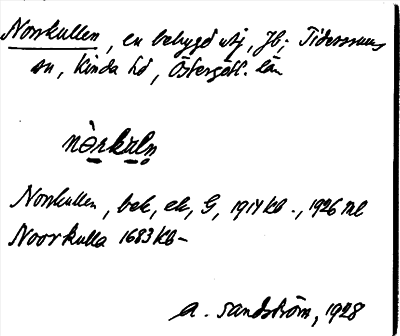 Norrkullen, en bebyggd utj, Jb; Tidersrums
sn, Kinda hd, Östergötl. län
Norrkullen, bek, ek, G, 1914 kb., 1926 ml
Noorkulla 1683 Kb-
A. Sandström, 1928